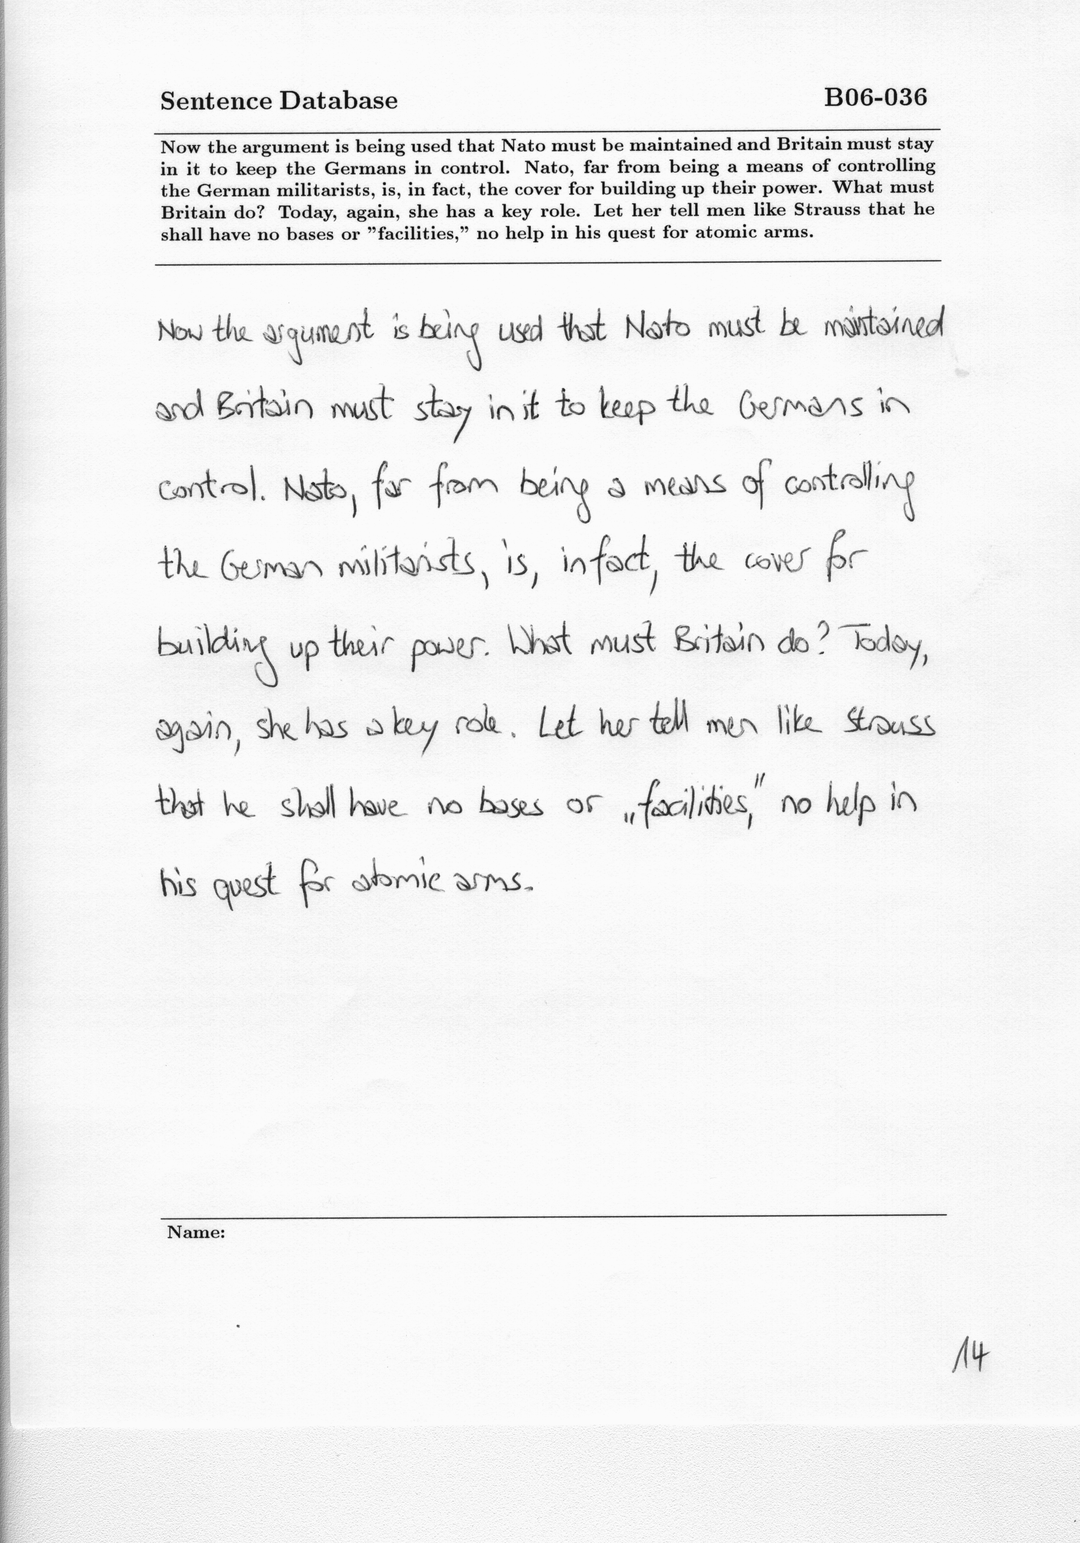 Sentence Database B06-036
Now the argument is being used that Nato must be maintained and Britain must stay
in it to keep the Germans in control. Nato, far from being a means of controlling
the German militarists, is, in fact, the cover for building up their power. What must
Britain do? Today, again, she has a key role. Let her tell men like Strauss that he
shall have no bases or ”facilities,” no help in his quest for atomic arms.
Now the argument is being used that Nato must be maintained
and Britain must stay in it to keep the Germans in
control. Nato, far from being a means of controlling
the German militarists, is, in fact, the cover for
building up their power. What must Britain do? Today,
again, she has a key role. Let her tell men like Strauss
that he shall have no bases or „facilities," no help in
his quest for atomic arms.
Name:
14